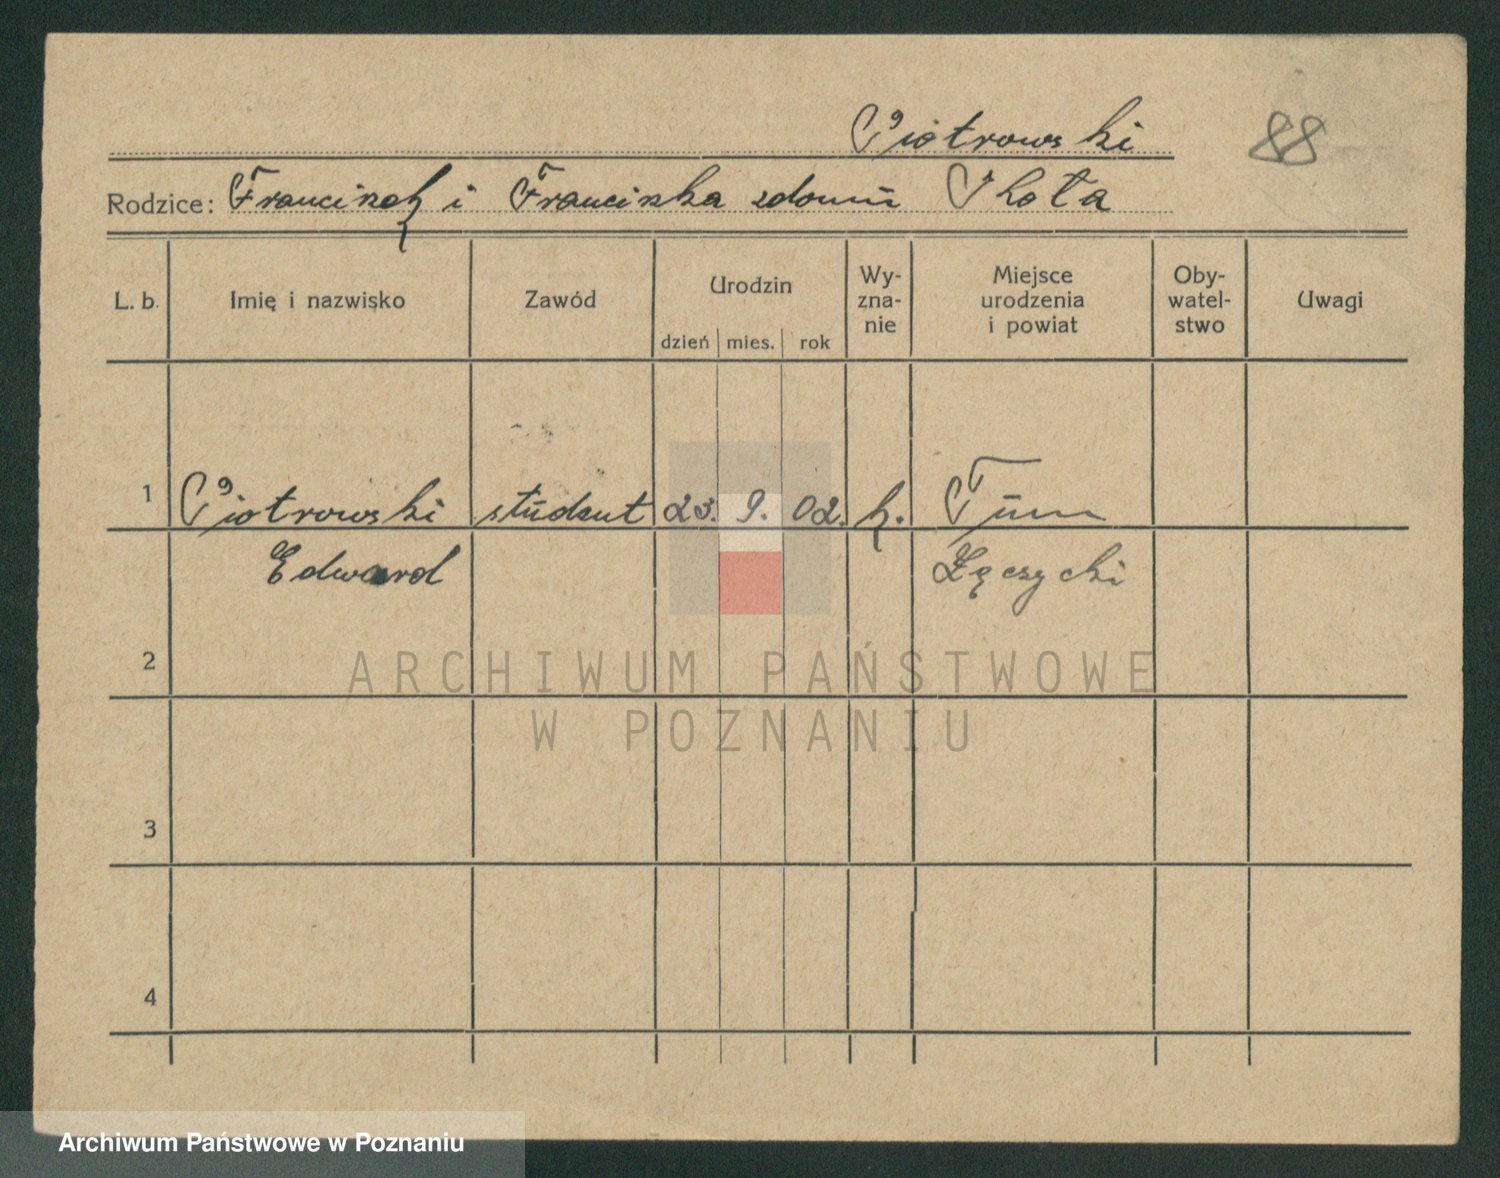 Piotrowski 88
Rodzice: Franciszek i Franciszka zdomu
L. b. Imię i nazwisko Zawód Urodzin Wy-zna-nie Miejsce urodzenia i powiat Oby-watel-stwo Uwagi
dzień mies. rok
1 Piotrowski student 23. 9. 02. k. Tum
Edward Łęczycki
2
ARCHIWUM PAŃSTWOWE
W POZNANIU
3
4
Archiwum Państwowe w Poznaniu